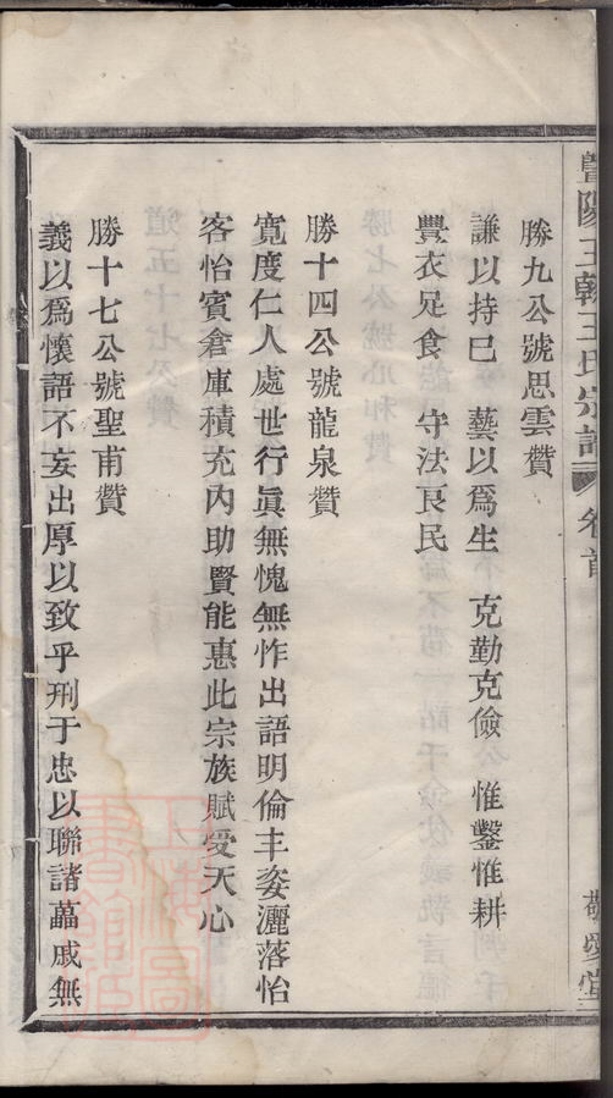 暨陽王氏宗譜 卷首 敬愛堂
勝九公號思雲贊
謙以持巳 藝以爲生 克勤克儉 惟鑿惟耕
豐衣足食 守法良民
勝十四公號龍泉贊
寬度仁人處世行眞無愧無怍出語明倫丰姿灑落怡
客怡賓倉庫積充內助賢能惠此宗族賦受天心
勝十七公號聖甫贊
義以爲懷語不妄出厚以致乎刑于忠以聯諸葢戚無